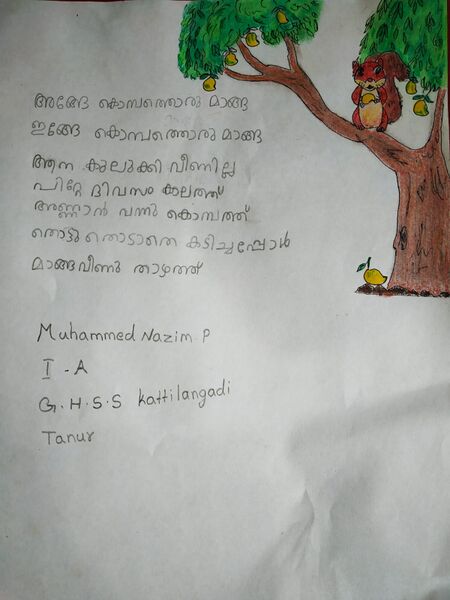 അങ്ങേ കൊമ്പത്തൊരു മാങ്ങ
ഇങ്ങേ കൊമ്പത്തൊരു മാങ്ങ
ആന കുലുക്കി വീണില്ല
പിറ്റേ ദിവസം കാലത്ത്
അണ്ണാൻ വന്നു കൊമ്പത്ത്
തൊട്ടു തൊടാതെ കടിച്ചപ്പോൾ
മാങ്ങവീണു താഴത്ത്
Muhammed Nazim P
I - A
G.H.S.S Kattilangadi
Tanur